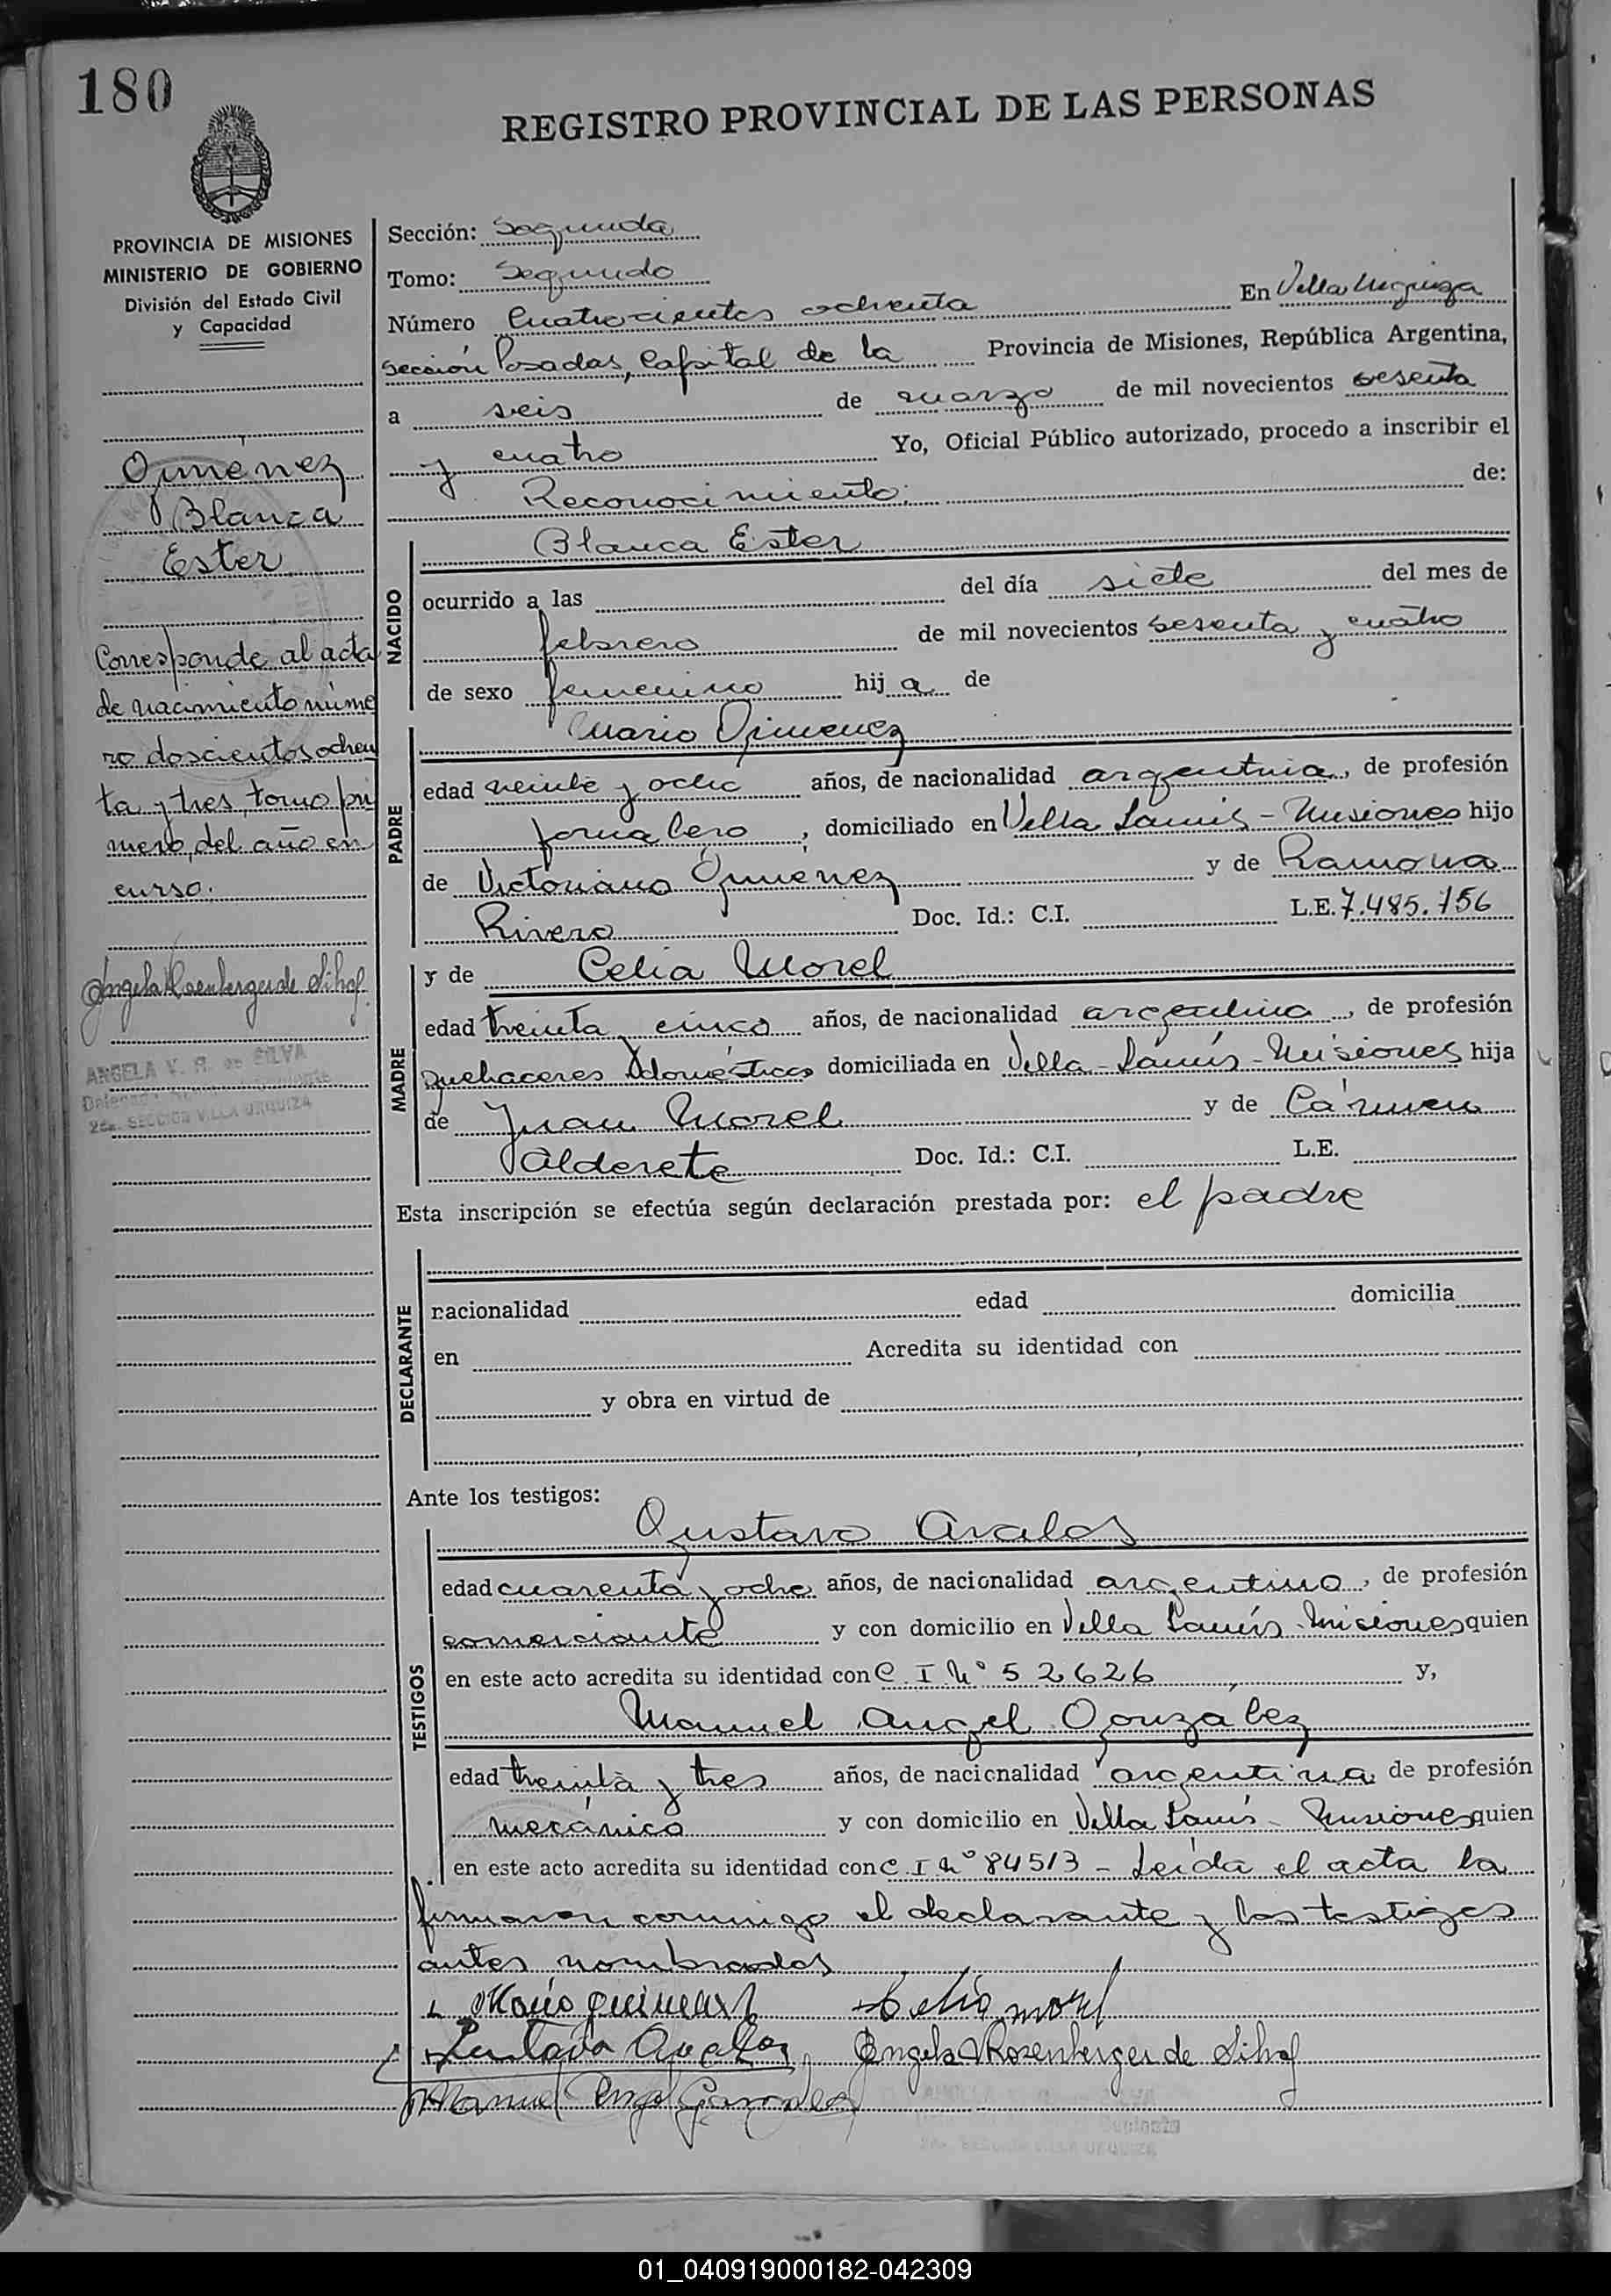 180
REGISTRO PROVINCIAL DE LAS PERSONAS
PROVINCIA DE MISIONES
MINISTERIO DE GOBIERNO
División del Estado Civil
y Capacidad
Gimenez
Blanca
Ester
Corresponde al acta
de nacimiento núme
ro doscientos ochen
ta y tres, tomo pri
mero, del año en
curso.
Angela Rosenberger de Silva
ANGELA V. R. de SILVA
2da. SECCION VILLA URQUIZA
Sección: Segunda
Tomo: Segundo
Número Cuatrocientos ochenta En Villa Urquiza
sección Posadas, Capital de la Provincia de Misiones, República Argentina,
a seis de marzo de mil novecientos sesenta
y cuatro Yo, Oficial Público autorizado, procedo a inscribir el
Reconocimiento de:
NACIDO
Blanca Ester
ocurrido a las del día siete del mes de
febrero de mil novecientos sesenta y cuatro
de sexo femenino hija de
PADRE
Mario Gimenez
edad veinte y ocho años, de nacionalidad argentina, de profesión
jornalero, domiciliado en Villa Lanús - Misiones hijo
de Victoriano Gimenez y de Ramona
Rivero Doc. Id.: C.I. L.E. 7.485.756
MADRE
y de Celia Morel
edad treinta cinco años, de nacionalidad argentina, de profesión
quehaceres domésticos domiciliada en Villa - Lanús - Misiones hija
de Juan Morel y de Cármen
Alderete Doc. Id.: C.I. L.E.
Esta inscripción se efectúa según declaración prestada por: el padre
DECLARANTE
nacionalidad edad domicilia
en Acredita su identidad con
y obra en virtud de
Ante los testigos:
TESTIGOS
Gustavo Avalos
edad cuarenta y ocho años, de nacionalidad argentino, de profesión
comerciante y con domicilio en Villa Lanús - Misiones quien
en este acto acredita su identidad con C. I. Nº 52626 y,
Manuel Angel Gonzalez
edad treinta y tres años, de nacionalidad argentina de profesión
mecánico y con domicilio en Villa Lanús - Misiones quien
en este acto acredita su identidad con C. I Nº 84513 - Leída el acta la
firmaron conmigo el declarante y los testigos
antes nombrados
Mario Gimenez Celia morel
Gustavo Avalos Angela V Rosenberger de Silva
Manuel Angel Gonzalez
01_040919000182-042309